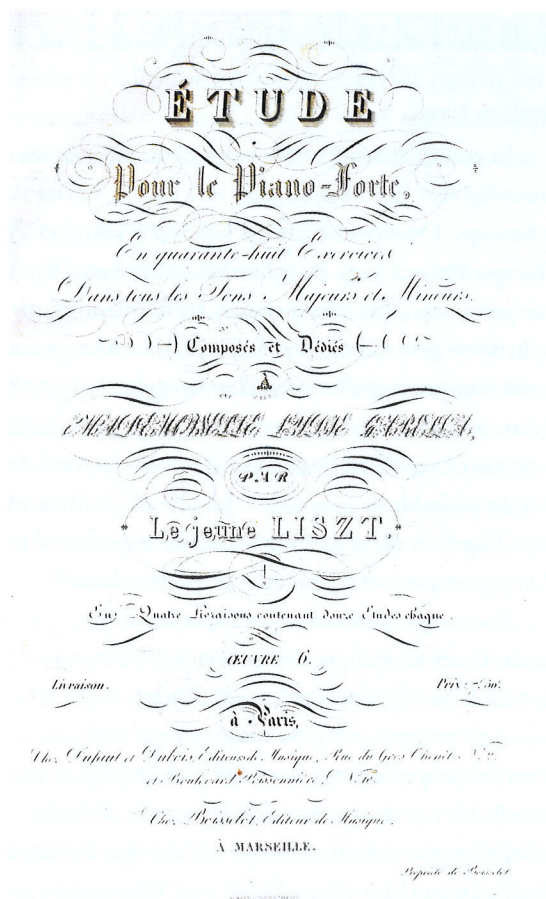 ÉTUDE
Pour le Piano-Forte,
En quarante-huit Exercices
Dans tous les Tons Majeurs et Mineurs.
Composés et Dédiés
À
MADEMOISELLE LYDIE GARELLA,
PAR
Le jeune LISZT.
En Quatre Livraisons contenant douze Études chaque
ŒUVRE 6.
Livraison.
Prix:
à Paris,
Chez Dufaut et Dubois, Editeurs de Musique, Rue du Gros Chenet N.º 2.
et Boulevard Poissonnière N.º 10.
Chez Boisselot, Editeur de Musique.
À MARSEILLE.
Propriété de Boisselot